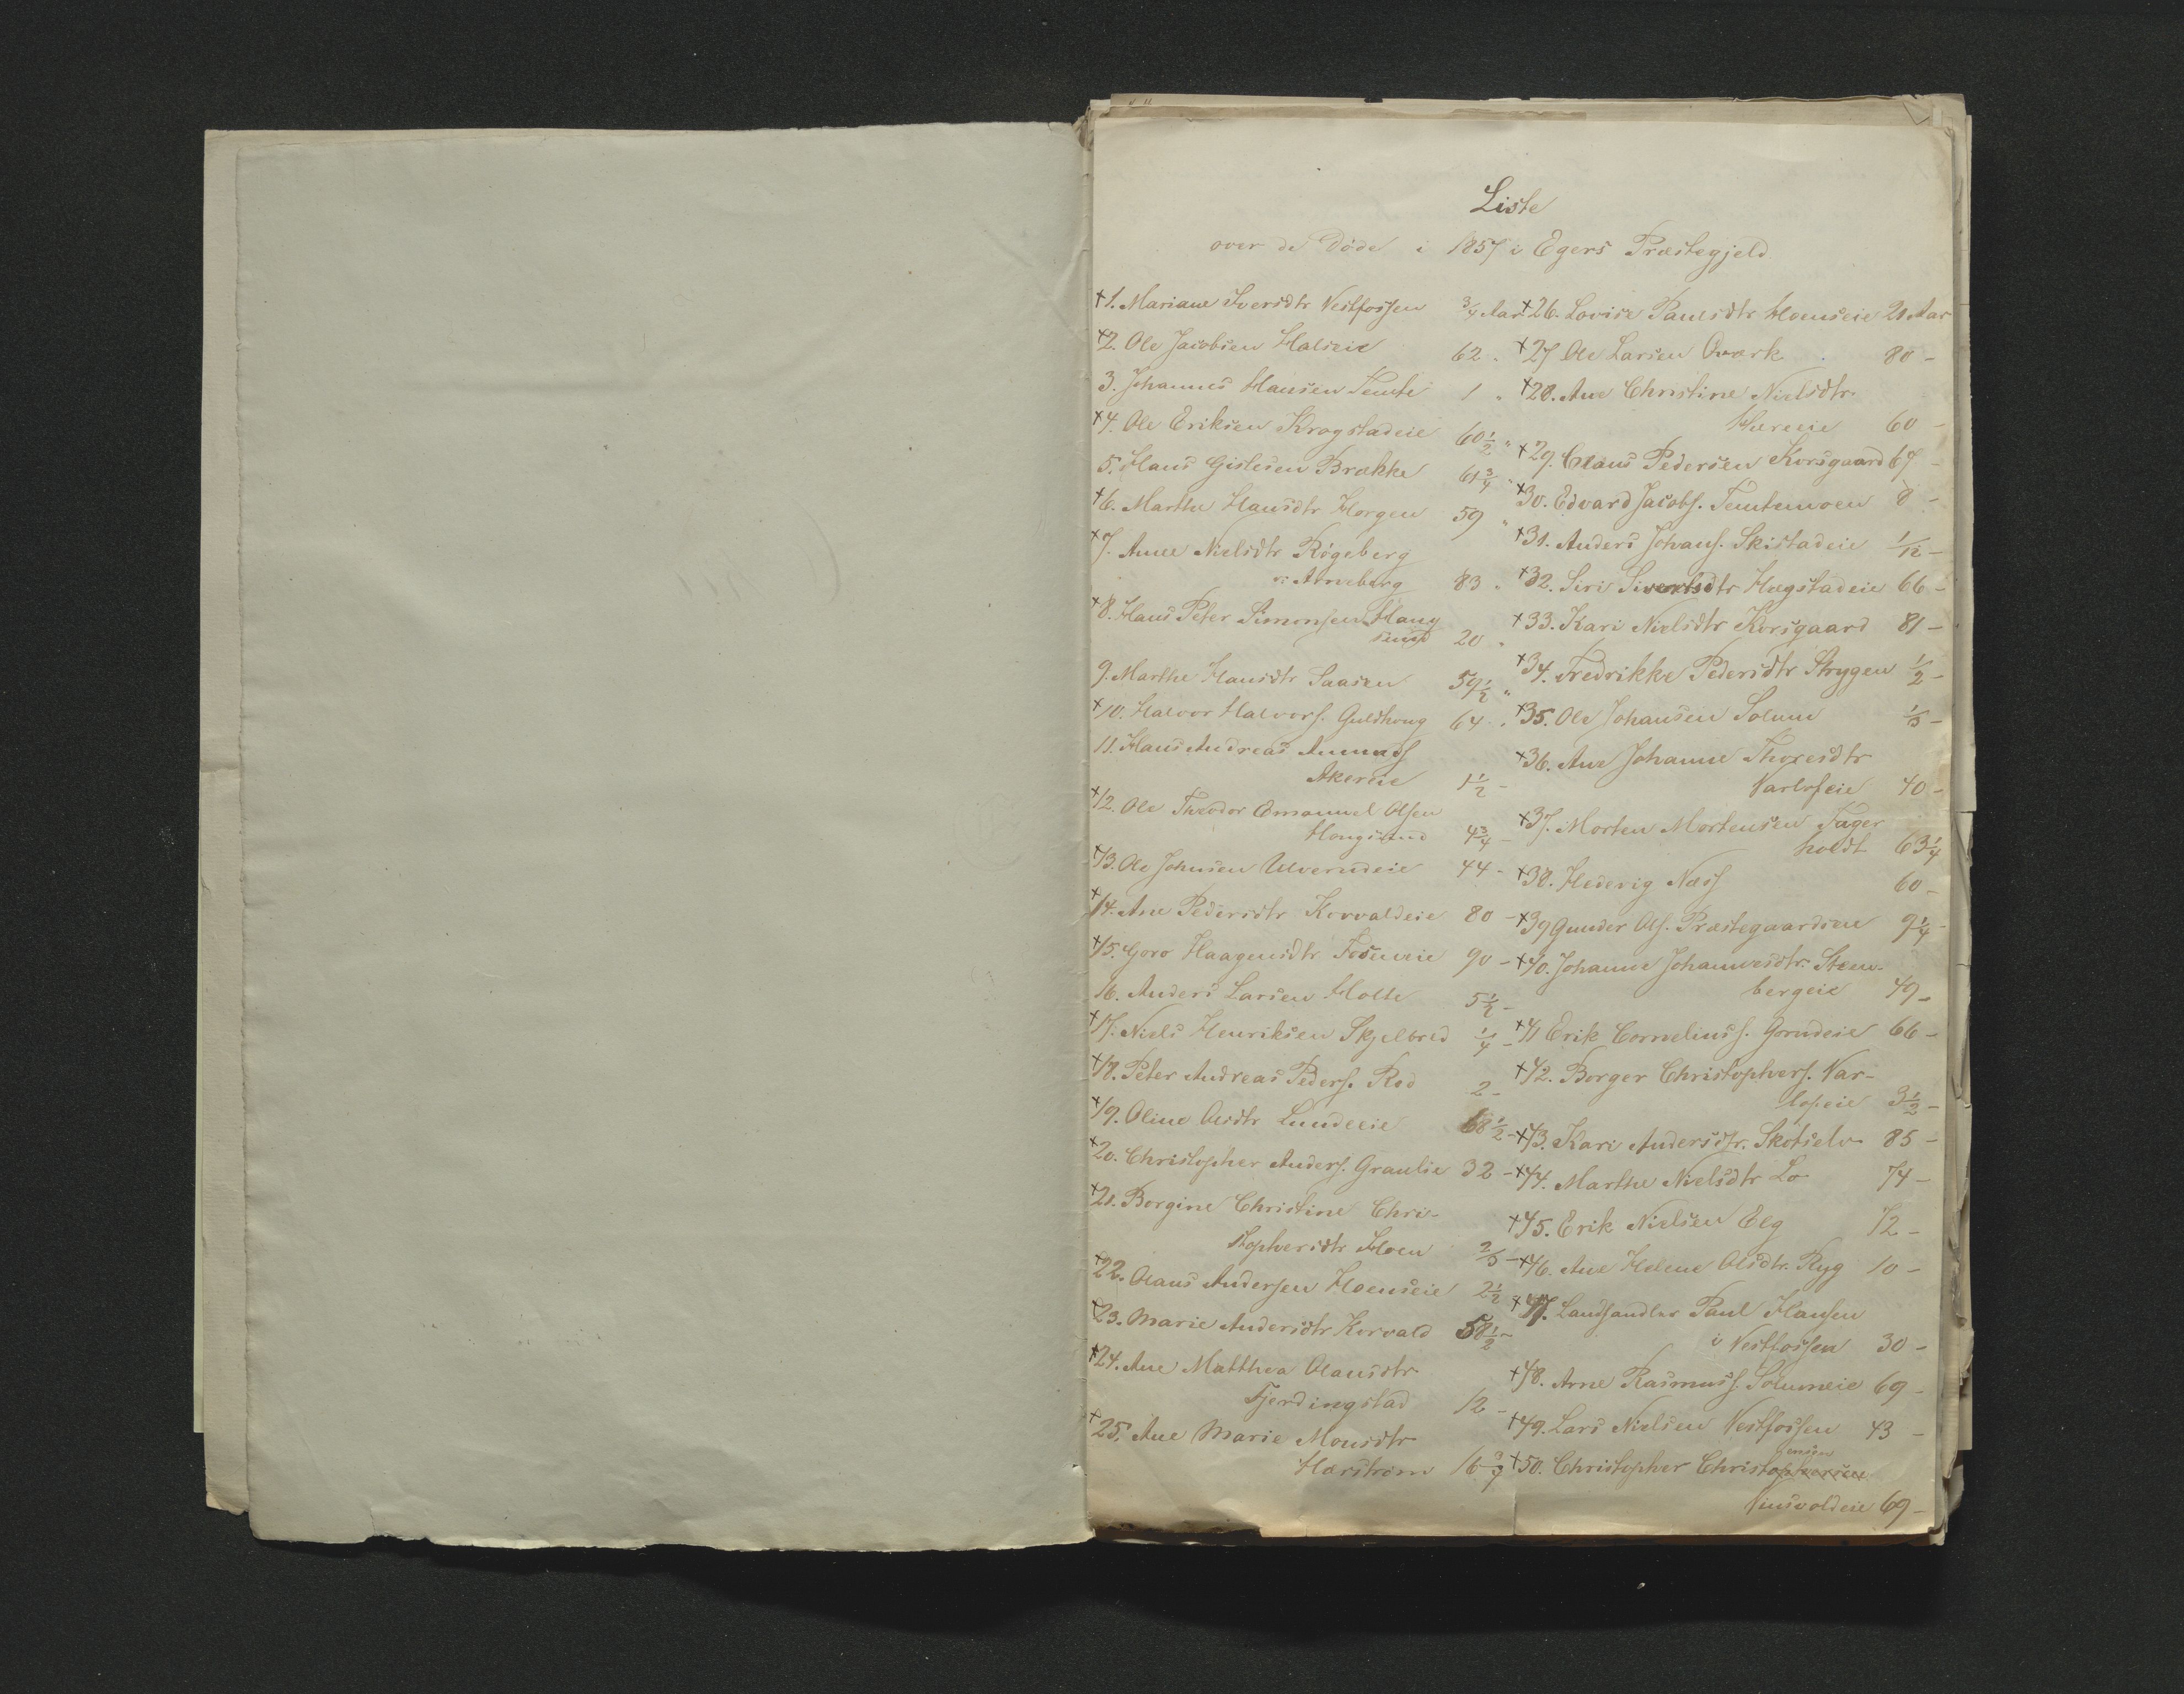 Liste
over de Døde i 1857 i Egers Præstegjeld
+1. Mariane Iversdtr Vestfossen 3/4 Aar
+2. Ole Jacobsen Halseie 62 "
3. Johannes Hansen Temte 1 "
+4. Ole Eriksen Krogstadeie 60 1/2 "
5. Hans Gislesen Brække 61 3/4 "
+6. Marthe Hansdtr Horgen 59 "
+7. Anne Nielsdtr Røgeberg
v: Arneberg 83 "
+8. Hans Peter Simonsen Houg
sund 20 "
9. Marthe Hansdtr Saasen 59 1/2 "
+10. Halvor Halvors. Guldhoug 64 "
11. Hans Andreas Amunds
Akereie 1 1/2 -
+12. Ole Theodor Emanuel Olsen
Hougsund 4 3/4 -
+13. Ole Johnsen Ulverudeie 44 -
+14. Ane Pedersdtr Korvaldeie 80 -
+15. Goro Haagensdtr Fosseneie 90 -
16. Anders Larsen Holte 5 1/2 -
+17. Niels Henriksen Skjelbred 1/4 -
+18. Peter Andreas Peders. Rød 2 -
+19. Oline Olsdtr Lundeeie 68 1/2 -
+20. Christopher Anders. Graulie 32 -
+21. Borgine Christine Chri-
stophersdtr Hoen 2/3 -
+22. Olaus Andersen Hoenseie 2 1/2 "
+23. Marie Andersdtr Korvald 58 1/2 -
+24. Ane Matthea Olausdtr
Fjerdingstad 12 -
+25. Ane Marie Monsdtr
Hærstrøm 16 3/4
+26. Lovise Paulsdtr Hoenseie 21 Aar
+27. Ole Larsen Qværk 80 -
+28. Ane Christine Nielsdtr
Hæreeie 60 -
+29. Claus Pedersen Korsgaard 67 -
+30. Edvard Jacobs. Temtemoen 8 -
+31. Anders Johans. Skistadeie 1/12 -
+32. Siri Sivertsdtr Hægstadeie 66 -
+33. Kari Nielsdtr Korsgaard 81 -
+34. Fredrikke Pedersdtr Strygen 1/2 -
+35. Ole Johansen Solum 1/3 -
+36. Ane Johanne Thoresdtr
Varloseie 40 -
+37. Morten Mortensen Fager
holdt 63 1/4
+38. Hedevig Næss 60 -
+39 Gunder Ols. Præstegaardseie 9 1/4 -
+40. Johanne Johannesdtr. Steen-
bergeie 49 -
+41 Erik Cornelinss. Gorudeie 66 -
+42. Borger Christophers. Var-
loseie 3 1/2 -
+43. Kari Andersdtr. Skotselv 85 -
+44. Marthe Nielsdtr Lo 74 -
+45. Erik Nielsen Elg 72 -
+46. Ane Helene Olsdtr. Ryg 10 -
+47. Landhandler Paul Hansen
i Vestfossen 30 -
+48. Arne Rasmuss. Solumeie 69 -
+49. Lars Nielsen Vestfossen 43 -
+50. Christopher Christophersen
69 -